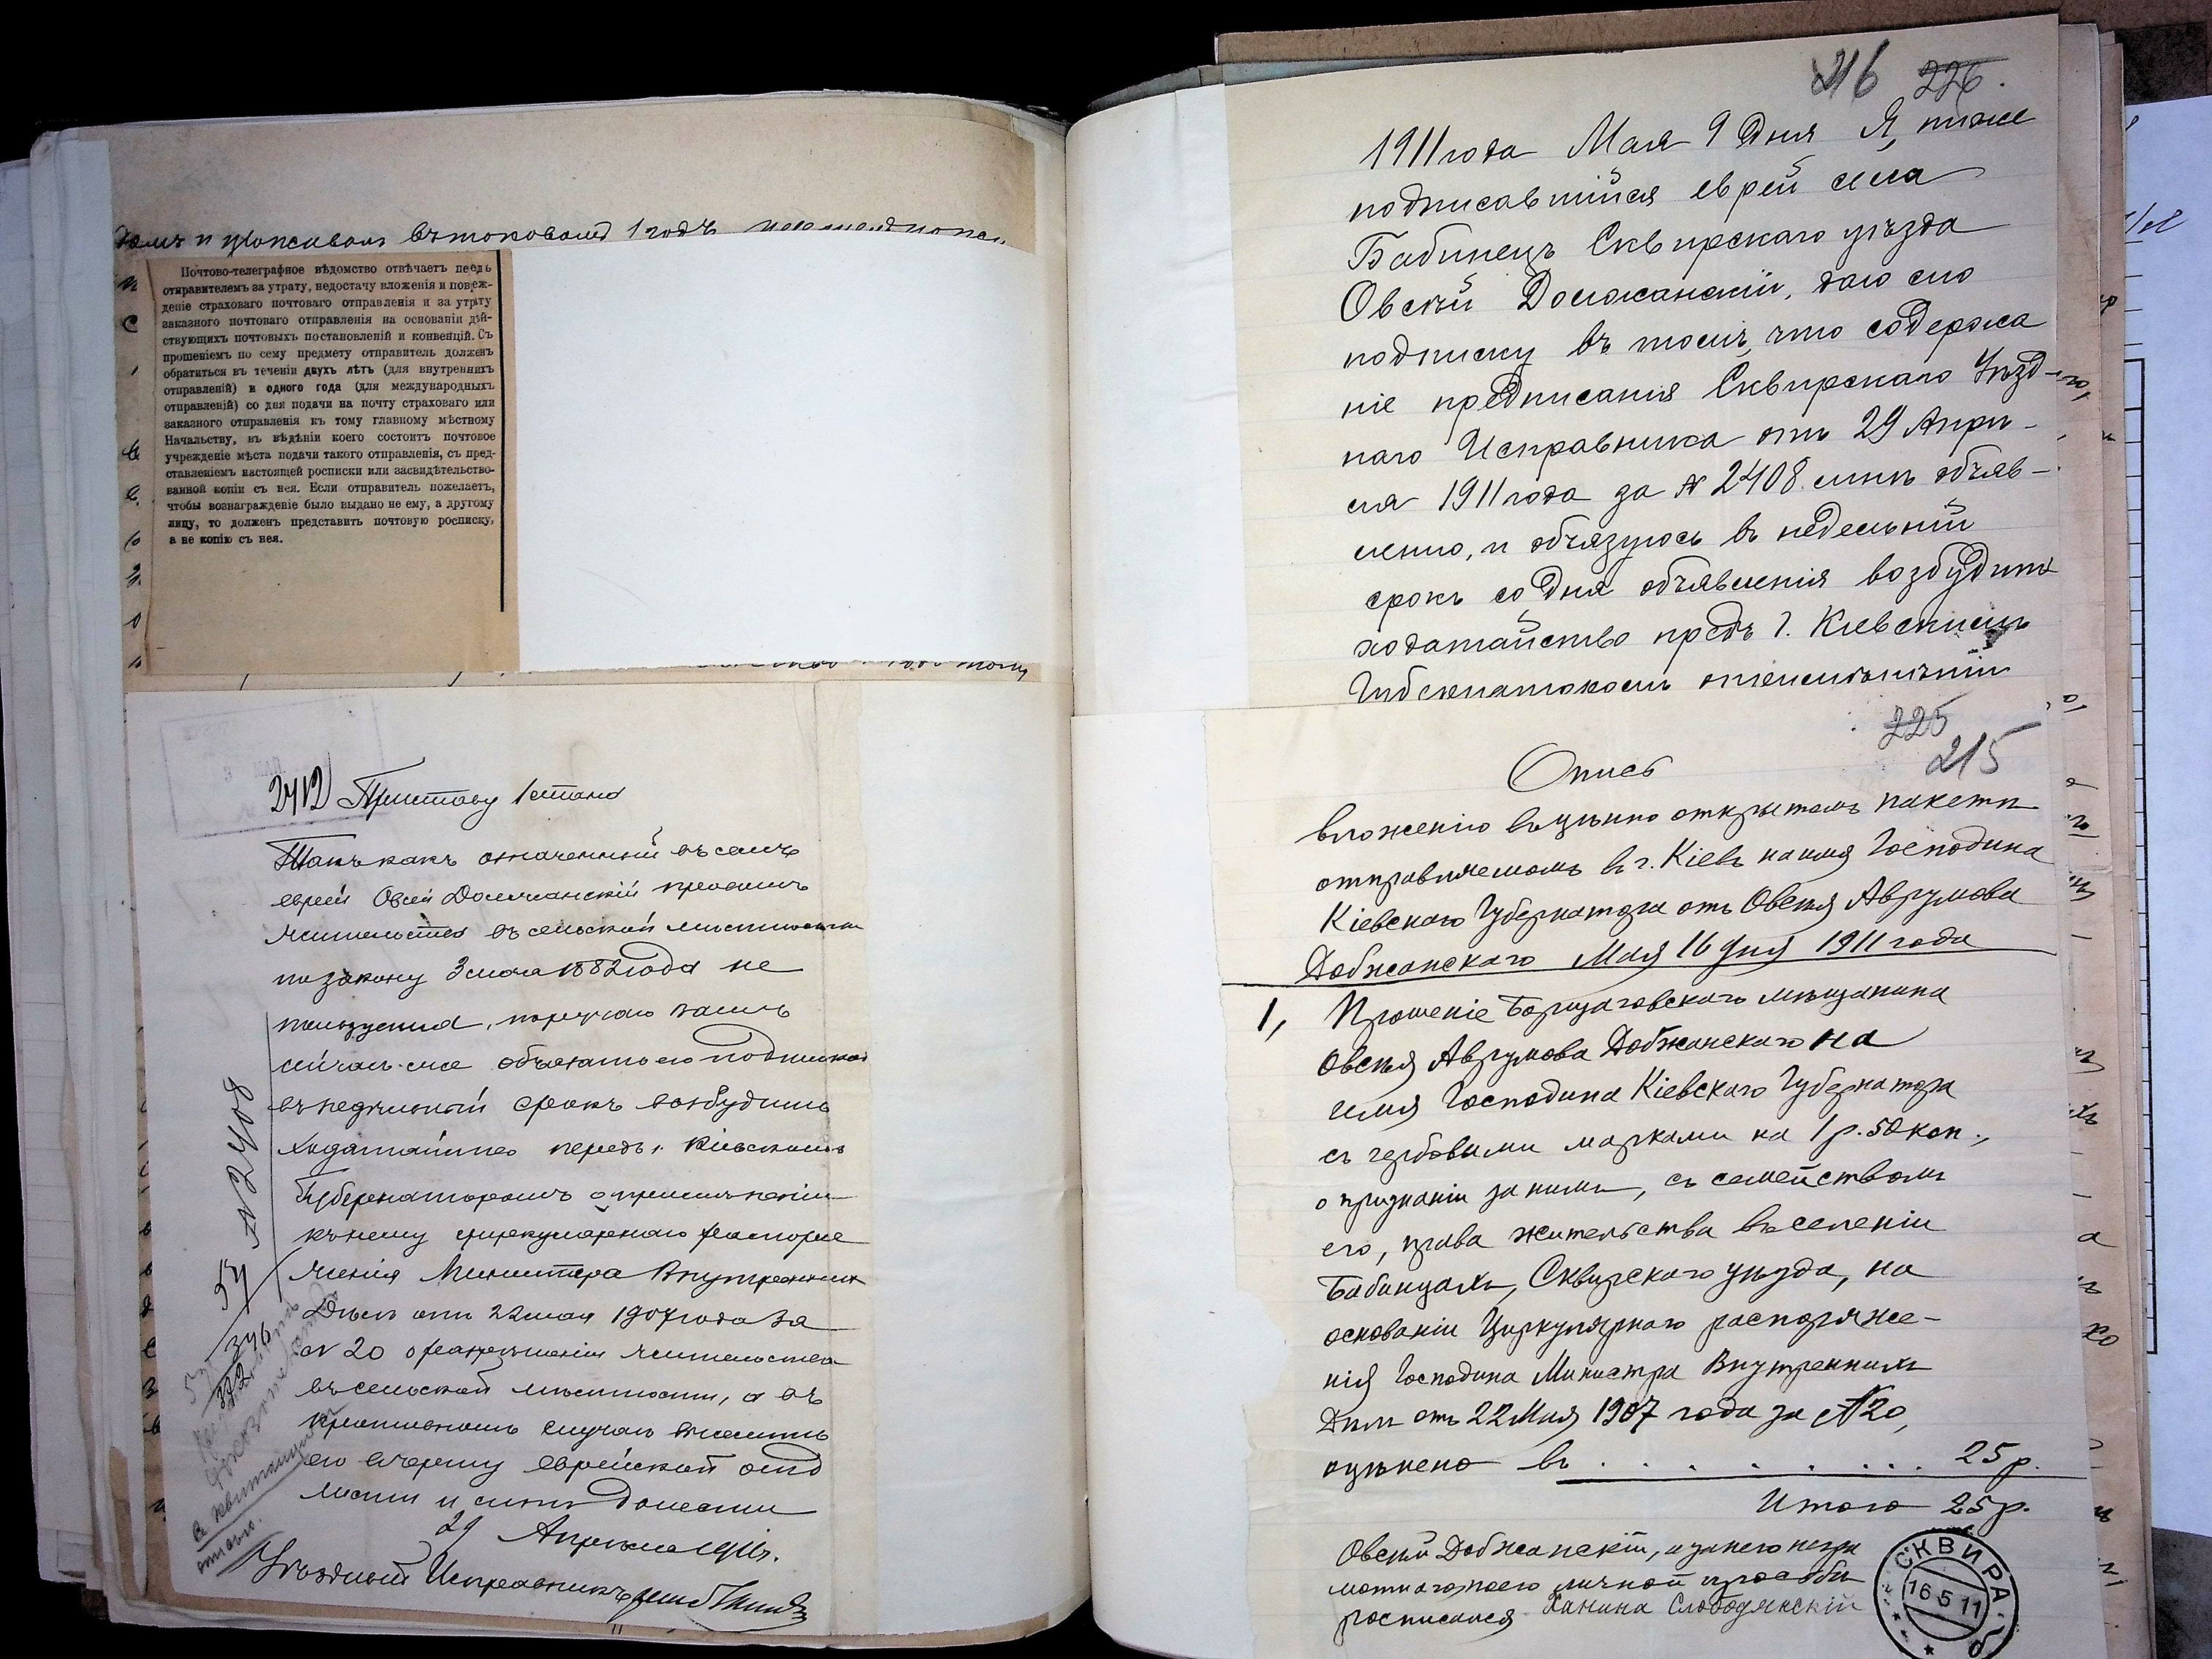 домъ и проживалъ въ таковомъ 1 годъ
Почтово-телеграфное вѣдомство отвѣчаетъ передъ
отправителемъ за утрату, недостачу вложенія и повреж-
деніе страховаго почтоваго отправленія и за утрату
заказного почтоваго отправленія на основаніи дѣй-
ствующихъ почтовыхъ постановленій и конвенцій. Съ
прошеніемъ по сему предмету отправитель долженъ
обратиться въ теченіи двухъ лѣтъ (для внутреннихъ
отправленій) и одного года (для международныхъ
отправленій) со дня подачи на почту страховаго или
заказного отправленія къ тому главному мѣстному
Начальству, въ вѣдѣніи коего состоитъ почтовое
учрежденіе мѣста подачи такого отправленія, съ пред-
ставленіемъ настоящей росписки или засвидѣтельство-
ванной копіи съ нея. Если отправитель пожелаетъ,
чтобы вознагражденіе было выдано не ему, а другому
лицу, то долженъ представить почтовую росписку,
а не копію съ нея.
2412 Приставу 1 стана
Такъ какъ означенный въ семъ
еврей Овсей Должанскій правомъ
жительства въ сельской мѣстности
по закону 3 мая 1882 года не
пользуется, поручаю вамъ
сейчасъ-же объявить ему подпиской
въ недѣльный срокъ возбудить
ходатайство передъ г. Кіевскимъ
Губернаторомъ о примѣненіи
къ нему циркулярнаго распоря
женія Министра Внутреннихъ
Дѣлъ отъ 22 мая 1907 года за
№ 20 о разрѣшеніи жительства
въ сельской мѣстности, а въ
противномъ случаѣ выселить
его въ черту еврейской осѣд
лости и мнѣ донести
29 Апрѣля 1911 г.
Уѣздный Исправникъ
№ 2408
216 226.
1911 года Мая 9 дня Я, ниже
подписавшійся еврей села
Бабинецъ Сквирскаго уѣзда
Овсѣй Должанскій, даю сію
подписку въ томъ, что содержа
ніе предписанія Сквирскаго Уѣзд-
наго Исправника отъ 29 Апрѣ-
ля 1911 года за № 2408 мнѣ объяв-
лено, и обязуюсь въ недельный
срокъ со дня объявленія возбудить
ходатайство предъ Г. Кіевскимъ
225
215
Опись
вложенію въ цѣнно открытомъ пакетѣ
отправляемомъ въ г. Кіевъ на имя Господина
Кіевскаго Губернатора отъ Овсѣя Аврумова
Добжанскаго Мая 16 дня 1911 года
1, Прошеніе Борщаговскаго мѣщанина
Овсѣя Аврумова Добжанскаго на
имя Господина Кіевскаго Губернатора
съ гербовыми марками на 1 р. 50 коп.,
о признаніи за нимъ, съ семействомъ
его, права жительства въ селеніи
Бабинцахъ, Сквирскаго уѣзда, на
основаніи Циркулярнаго распоряже-
нія Господина Министра Внутреннихъ
Дѣлъ отъ 22 Мая 1907 года за № 20,
оцѣнено въ . . . . . . . . 25 р.
Итого 25 р.
Овсѣй Добжанскій, а за него негра
мотнаго, по его личной просьбѣ
росписался Ханина Слободянскій
СКВИРА
16 5 11